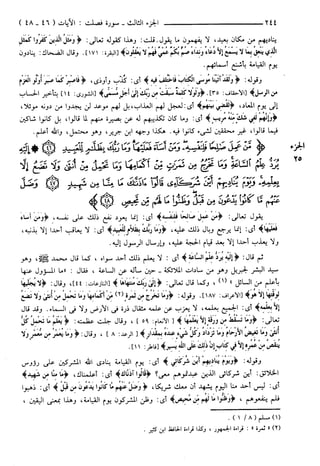 ٢٤٤ الجزء الثالث - سورة فصلت : الآيات (٤٦ - ٤٨)
يناديهم من مكان بعيد، لا يفهمون ما يقول. قلت: وهذا كقوله تعالى: ﴿ومثل الذين كفروا كمثل
الذي ينعق بما لا يسمع إلا دعاء ونداء صم بكم عمي فهم لا يعقلون﴾ [البقرة: ١٧١]. وقال الضحاك: ينادون
يوم القيامة بأشنع أسمائهم.
وقوله: ﴿ولقد آتينا موسى الكتاب فاختلف فيه﴾ أي: كُذِّب وأوذي، ﴿فاصبر كما صبر أولو العزم
من الرسل﴾ [الأحقاف: ٣٥]. ﴿ولولا كلمة سبقت من ربك إلى أجل مسمى﴾ [الشورى: ١٤] بتأخير الحساب
إلى يوم المعاد، ﴿لقضي بينهم﴾ أي: لعجل لهم العذاب، بل لهم موعد لن يجدوا من دونه موئلا،
﴿وإنهم لفي شك منه مريب﴾ أي: وما كان تكذيبهم له عن بصيرة منهم لما قالوا، بل كانوا شاكين
فيما قالوا، غير محققين لشيء كانوا فيه. هكذا وجهه ابن جرير، وهو محتمل، والله أعلم.
الجزء ٢٥
﴿من عمل صالحا فلنفسه ومن أساء فعليها وما ربك بظلام للعبيد ﴿٤٦﴾ إليه
يرد علم الساعة وما تخرج من ثمرت من أكمامها وما تحمل من أنثى ولا تضع إلا
بعلمه ويوم يناديهم أين شركاءي قالوا آذناك ما منا من شهيد ﴿٤٧﴾ وضل
عنهم ما كانوا يدعون من قبل وظنوا ما لهم من محيص ﴿٤٨﴾﴾
يقول تعالى: ﴿من عمل صالحا فلنفسه﴾ أي: إنما يعود نفع ذلك على نفسه، ﴿ومن أساء
فعليها﴾ أي: إنما يرجع وبال ذلك عليه، ﴿وما ربك بظلام للعبيد﴾ أي: لا يعاقب أحدا إلا بذنبه،
ولا يعذب أحدا إلا بعد قيام الحجة عليه، وإرسال الرسول إليه.
ثم قال: ﴿إليه يرد علم الساعة﴾ أي: لا يعلم ذلك أحد سواه، كما قال محمد ﷺ، وهو
سيد البشر لجبريل وهو من سادات الملائكة - حين سأله عن الساعة، فقال: «ما المسؤول عنها
بأعلم من السائل» (١)، وكما قال تعالى: ﴿إلى ربك منتهاها﴾ [النازعات: ٤٤]، وقال: ﴿لا يجليها
لوقتها إلا هو﴾ [الأعراف: ١٨٧]. وقوله: ﴿وما تخرج من ثمرة (٢) من أكمامها وما تحمل من أنثى ولا تضع
إلا بعلمه﴾ أي: الجميع بعلمه، لا يعزب عن علمه مثقال ذرة في الأرض ولا في السماء. وقد قال
تعالى: ﴿وما تسقط من ورقة إلا يعلمها﴾ [الأنعام: ٥٩]، وقال جلت عظمته: ﴿يعلم ما تحمل كل
أنثى وما تغيض الأرحام وما تزداد وكل شيء عنده بمقدار﴾ [الرعد: ٨]، وقال: ﴿وما يعمر من معمر ولا
ينقص من عمره إلا في كتاب إن ذلك على الله يسير﴾ [فاطر: ١١].
وقوله: ﴿ويوم يناديهم أين شركائي﴾ أي: يوم القيامة ينادي الله المشركين على رؤوس
الخلائق: أين شركائي الذين عبدتموهم معي؟ ﴿قالوا آذناك﴾ أي: أعلمناك، ﴿ما منا من شهيد﴾
أي: ليس أحد منا اليوم يشهد أن معك شريكا، ﴿وضل عنهم ما كانوا يدعون من قبل﴾ أي: ذهبوا
فلم ينفعوهم، ﴿وظنوا ما لهم من محيص﴾ أي: وظن المشركون يوم القيامة، وهذا بمعنى اليقين،
(١) مسلم (٨ / ١).
(٢) «ثمرة»: قراءة الجمهور، وكذا قراءة الحافظ ابن كثير.